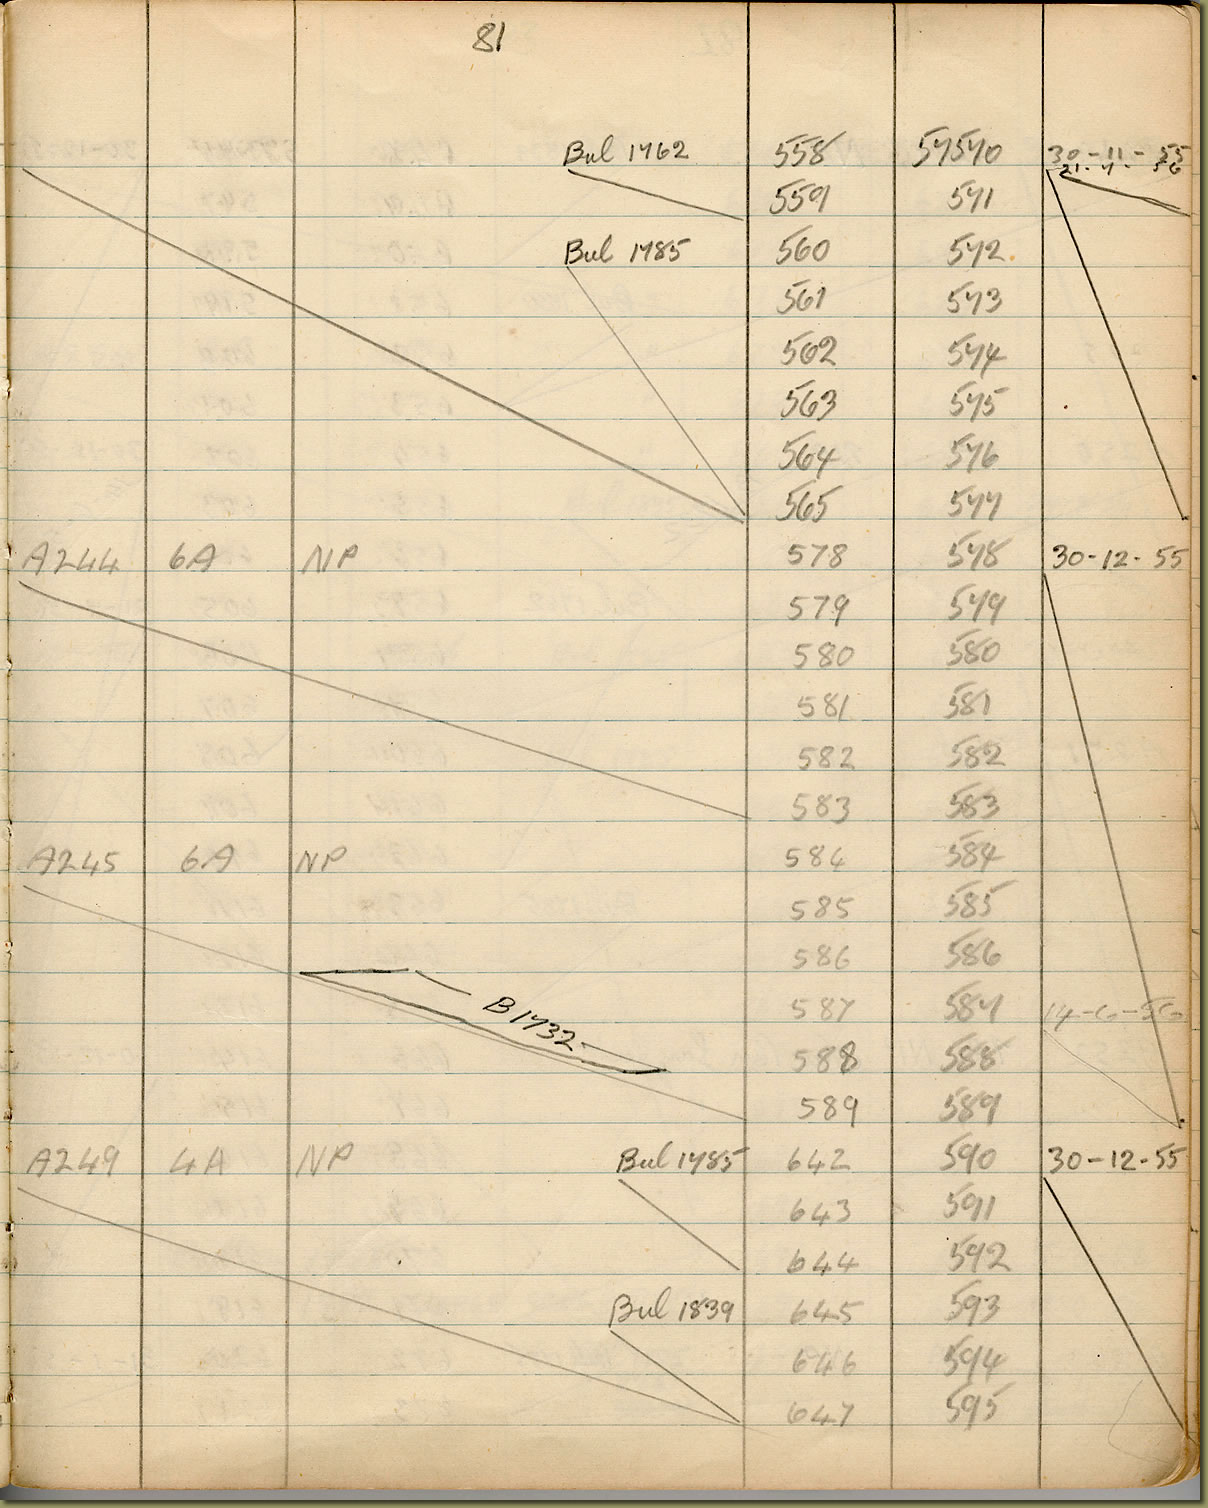 81
Bul 1762 558 57570 30-11-55
21-7-56
559 571
Bul 1785 560 572
561 573
562 574
563 575
564 576
565 577
A244 6A NP 578 578 30-12-55
579 579
580 580
581 581
582 582
583 583
A245 6A NP 584 584
585 585
586 586
B1732 587 587 14-6-56
588 588
589 589
A249 4A NP Bul 1785 642 590 30-12-55
643 591
644 592
Bul 1839 645 593
646 594
647 595